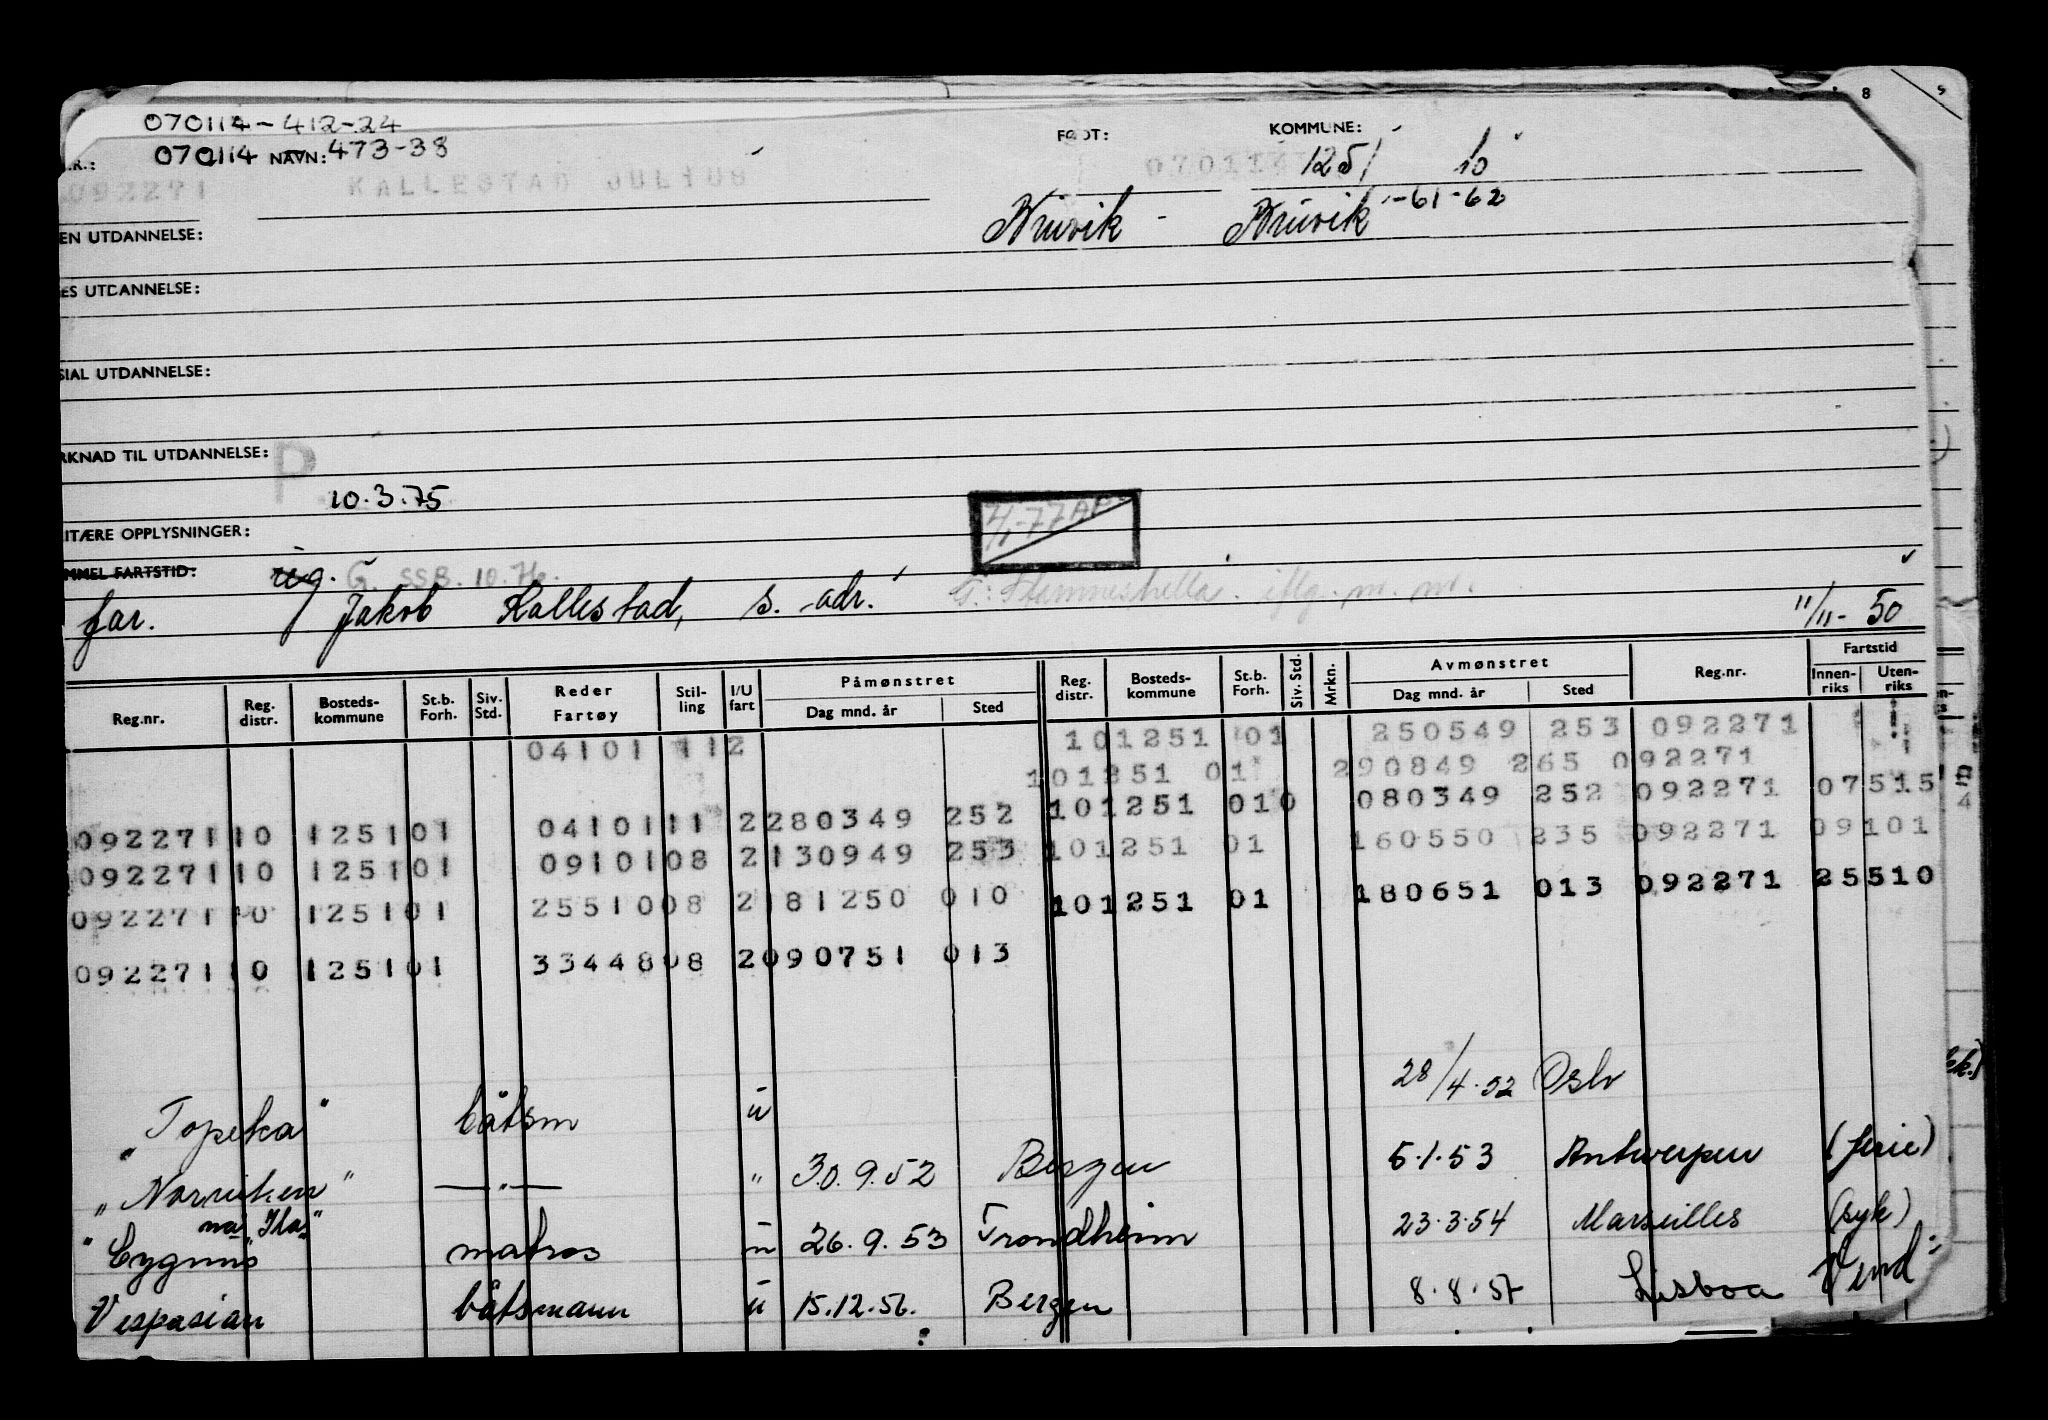 070114-412-24
070114 NAVN: 473-38
FØDT: KOMMUNE:
R.:
092271 KALLESTAD JULIUS 070114 1251 10
Bruvik - Bruvik -61-62
EN UTDANNELSE:
ES UTDANNELSE:
SIAL UTDANNELSE:
RKNAD TIL UTDANNELSE: P
10.3.75
7/1-77 AP
ITÆRE OPPLYSNINGER:
MMEL FARTSTID: reg. G. SSB. 10.76.
far. Jakob Kallestad, s. adr. G: Stamneshella iflg. m. m. 11/11-50
Reg.nr. Reg. distr. Bosteds-kommune St.b. Forh. Siv. Std. Reder Fartøy Stil-ling I/U fart Påmønstret Dag mnd. år Sted Reg. distr. Bosteds-kommune St.b. Forh. Siv. Std. Mrkn. Avmønstret Dag mnd. år Sted Reg.nr. Fartstid Innen-riks Uten-riks
04101 112 101251 01 250549 253 092271
101251 01 290849 265 092271
092271 10 1251 01 04101 11 2 280349 252 101251 010 080349 252 092271 07515
092271 10 1251 01 09101 08 2 130949 253 101251 01 160550 235 092271 09101
092271 10 1251 01 25510 08 2 181250 010 101251 01 180651 013 092271 25510
092271 10 1251 01 33448 08 2 090751 013
"Topeka" båtsm u 28/4.52 Oslo
"Norviken" —"— " 30.9.52 Bergen 5.1.53 Antwerpen (ferie)
nå "Ila"
"Cygnus matros u 26.9.53 Trondheim 23.3.54 Marseilles (syk)
Vespasian båtsmann u 15.12.56. Bergen 8.8.57 Lisboa Vend